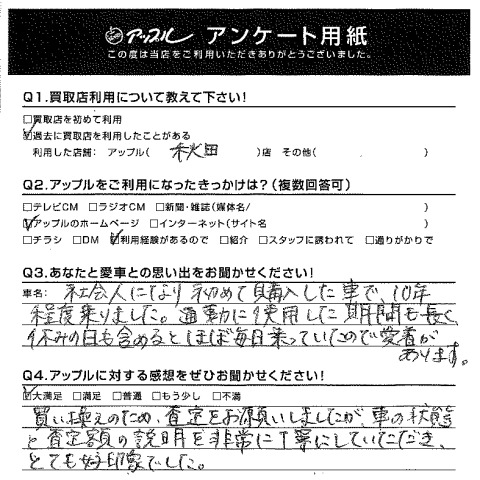 アップル アンケート用紙
この度は当店をご利用いただきありがとうございました。
Q1.買取店利用について教えて下さい!
□買取店を初めて利用
☑過去に買取店を利用したことがある
利用した店舗: アップル( 秋田 )店 その他( )
Q2.アップルをご利用になったきっかけは?(複数回答可)
□テレビCM □ラジオCM □新聞・雑誌(媒体名/ )
☑アップルのホームページ □インターネット(サイト名 )
□チラシ □DM ☑利用経験があるので □紹介 □スタッフに誘われて □通りがかりで
Q3.あなたと愛車との思い出をお聞かせください!
車名: 社会人になり初めて購入した車で、10年
程度乗りました。通勤に使用した期間も長く
休みの日も含めるとほぼ毎日乗っていたので愛着が
あります。
Q4.アップルに対する感想をぜひお聞かせください!
☑大満足 □満足 □普通 □もう少し □不満
買い換えのため、査定をお願いしましたが、車の状態
と査定額の説明を非常に丁寧にしていただき、
とても好印象でした。